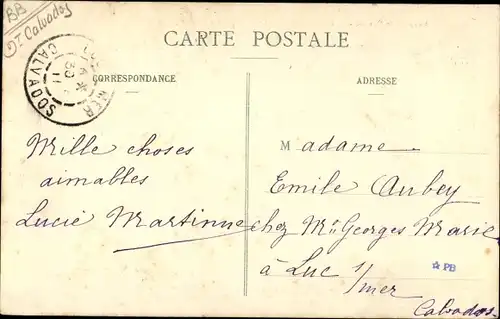 BB
Dt Calvados
CARTE POSTALE
CORRESPONDANCE
ADRESSE
MER
CALVADOS
30
11
Mille choses
aimables
Lucie Martinne
Madame
Emile Aubey
chez Mr Georges Marie
à Luc s/mer
Calvados
☆ PB